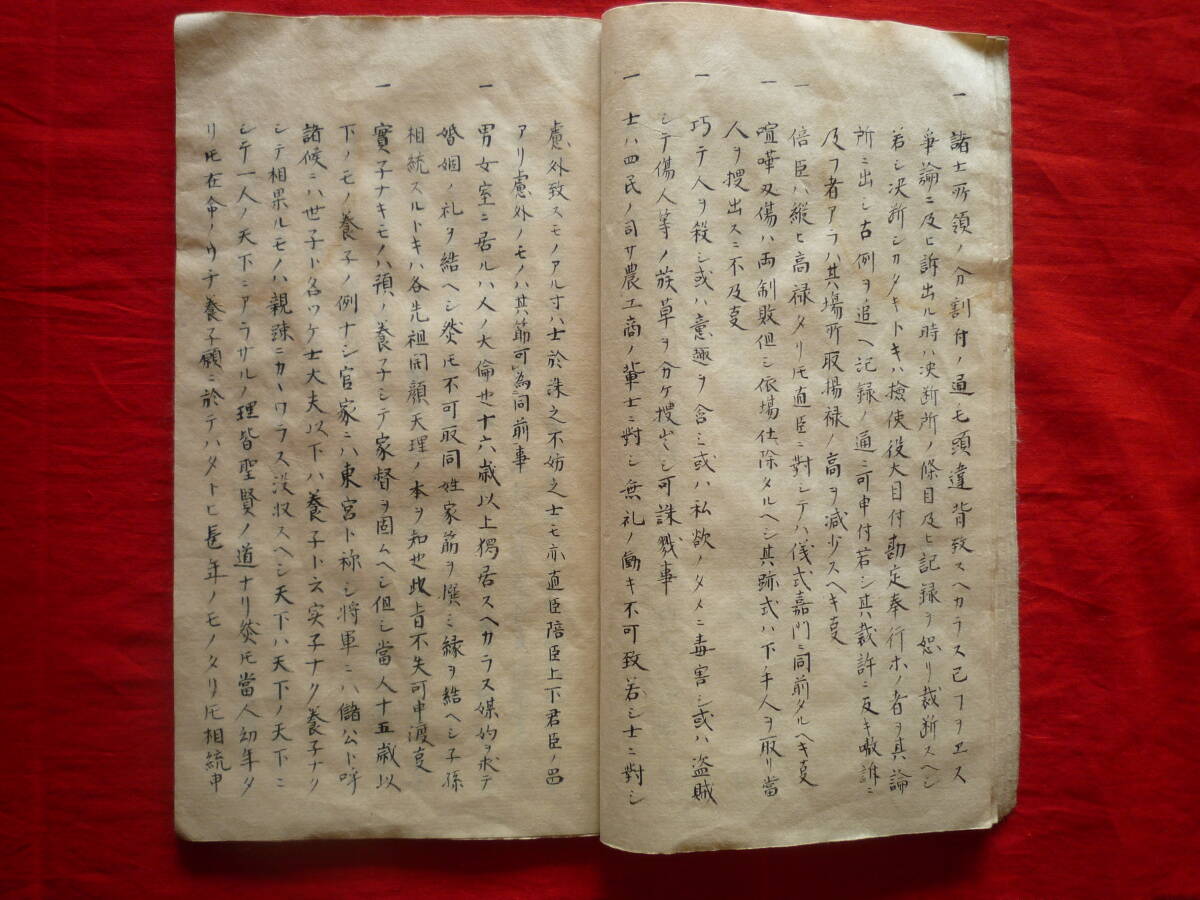 一 諸士所領ノ分割付ノ通モ頭違背致スヘカラス已フヲヱス
爭論ニ及ヒ訴出ル時ハ决断所ノ條目及ヒ記録ヲ恕リ裁断スヘシ
若シ决断シカタキトキハ檢使役大目付勘定奉行ホノ者ヲ其論
所ニ出シ古例ヲ追ヘ記録ノ通ニ可申付若シ其裁許ニ反キ嗷訴ニ
及フ者アラハ其場所取揚禄ノ高ヲ减少スヘキ叓
一 倍臣ハ縦ヒ高禄タリ𪜈直臣ニ對シテハ儀式嘉門ニ同前タルヘキ叓
一 喧嘩刄傷ハ両制敗但シ依場仕除タルヘシ其跡式ハ下手人ヲ取リ當
人ヲ捜出スニ不及叓
一 巧テ人ヲ殺シ或ハ意趣ヲ含ミ或ハ私欲ノタメニ毒害シ或ハ盗賊
シテ傷人等ノ族草ヲ分ケ捜出シ可誅戮事
一 士ハ四民ノ司サ農工商ノ輩士ニ對シ無礼ノ働キ不可致若シ士ニ對シ
慮外致スモノアル寸ハ士於誅之不妨之士モ亦直臣陪臣上下君臣ノ
アリ慮外ノモノハ其筋可為同前事
一 男女室ニ居ルハ人ノ大倫也十六歳以上獨居スヘカラス媒妁ヲ求テ
婚姻ノ礼ヲ結ヘシ然𪜈不可取同姓家筋ヲ撰ミ縁ヲ結ヘシ子孫
相統スルトキハ各先祖開顔天理ノ本ヲ知也此旨不失可申渡叓
一 實子ナキモノハ預ノ養子シテ家督ヲ固ムヘシ但シ當人十五歳以
下ノモノ養子ノ例ナシ官家ニハ東宮ト称シ将軍ニハ儲公ト呼
諸候ニハ世子ト名ツケ士大夫以下ハ養子ト云実子ナク養子ナク
シテ相果ルモノハ親踈ニカヽワラス没収スヘシ天下ハ天下ノ天下ニ
シテ一人ノ天下ニアラサルノ理皆聖賢ノ道ナリ然𪜈當人幼年タ
リ𪜈在命ノウチ養子願ニ於テハタトヒ長年ノモノタリ𪜈相統申